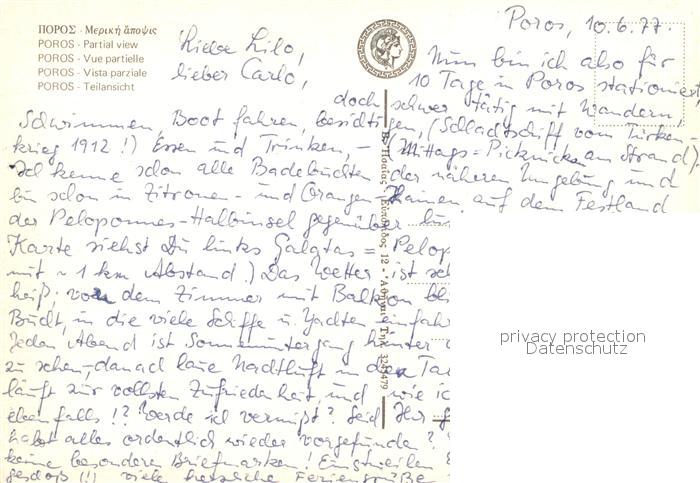 ΠΟΡΟΣ - Μερική ἄποψις
POROS - Partial view
POROS - Vue partielle
POROS - Vista parziale
POROS - Teilansicht
Poros, 10.6.77.
Liebe Lilo,
lieber Carlo,
Nun bin ich also für
10 Tage in Poros stationiert
doch schwer tätig mit Wandern,
Schwimmen, Boot fahren, besichtigen, (Schlachtschiff vom Türken-
krieg 1912!) Essen und Trinken, – (Mittags-Picknicke am Strand).
Ich kenne schon alle Badebuchten der näheren Umgebung und
bin schon in Zitronen- und Orangen-Hainen auf dem Festland
der Peloponnes-Halbinsel gegenüber
Karte siehst Du links Galatas = Pelop
mit ~ 1 km Abstand.) Das Wetter ist
heiß; von dem Zimmer mit Balkon
Bucht, in die viele Schiffe u. Yachten einfah
Jeden Abend ist Sonnenuntergang hinter
zu sehen, danach laue Nachtluft in
läuft zur vollsten Zufriedenheit, und wie ic
ebenfalls!? Werde ich vermißt? Seid Ihr
habt alles ordentlich wieder vorgefunden?
keine besonderen Briefmarken! Einstweilen
viele herzliche Feriengrüße
12 - Ἀθῆναι Τηλ. 3249479
privacy protection
Datenschutz